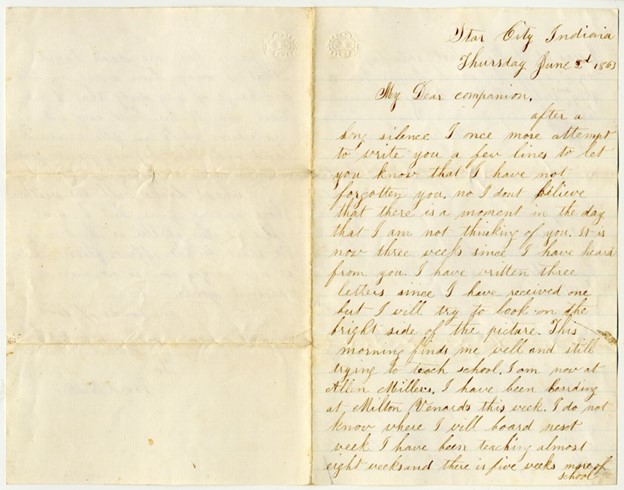 Star City Indiana
Thursday June 2d 1863
My Dear companion,
after a
long silence I once more attempt
to write you a few lines to let
you know that I have not
forgotten you. no I dont believe
that there is a moment in the day
that I am not thinking of you. It is
now three weeks since I have heard
from you I have written three
letters since I have received one
but I will try to look on the
bright side of the picture. This
morning finds me well and still
trying to teach school. I am now at
Allen Millers. I have been boarding
at Milton Venards this week. I do not
know where I will board next
week I have been teaching almost
eight weeks and there is five weeks more of
school